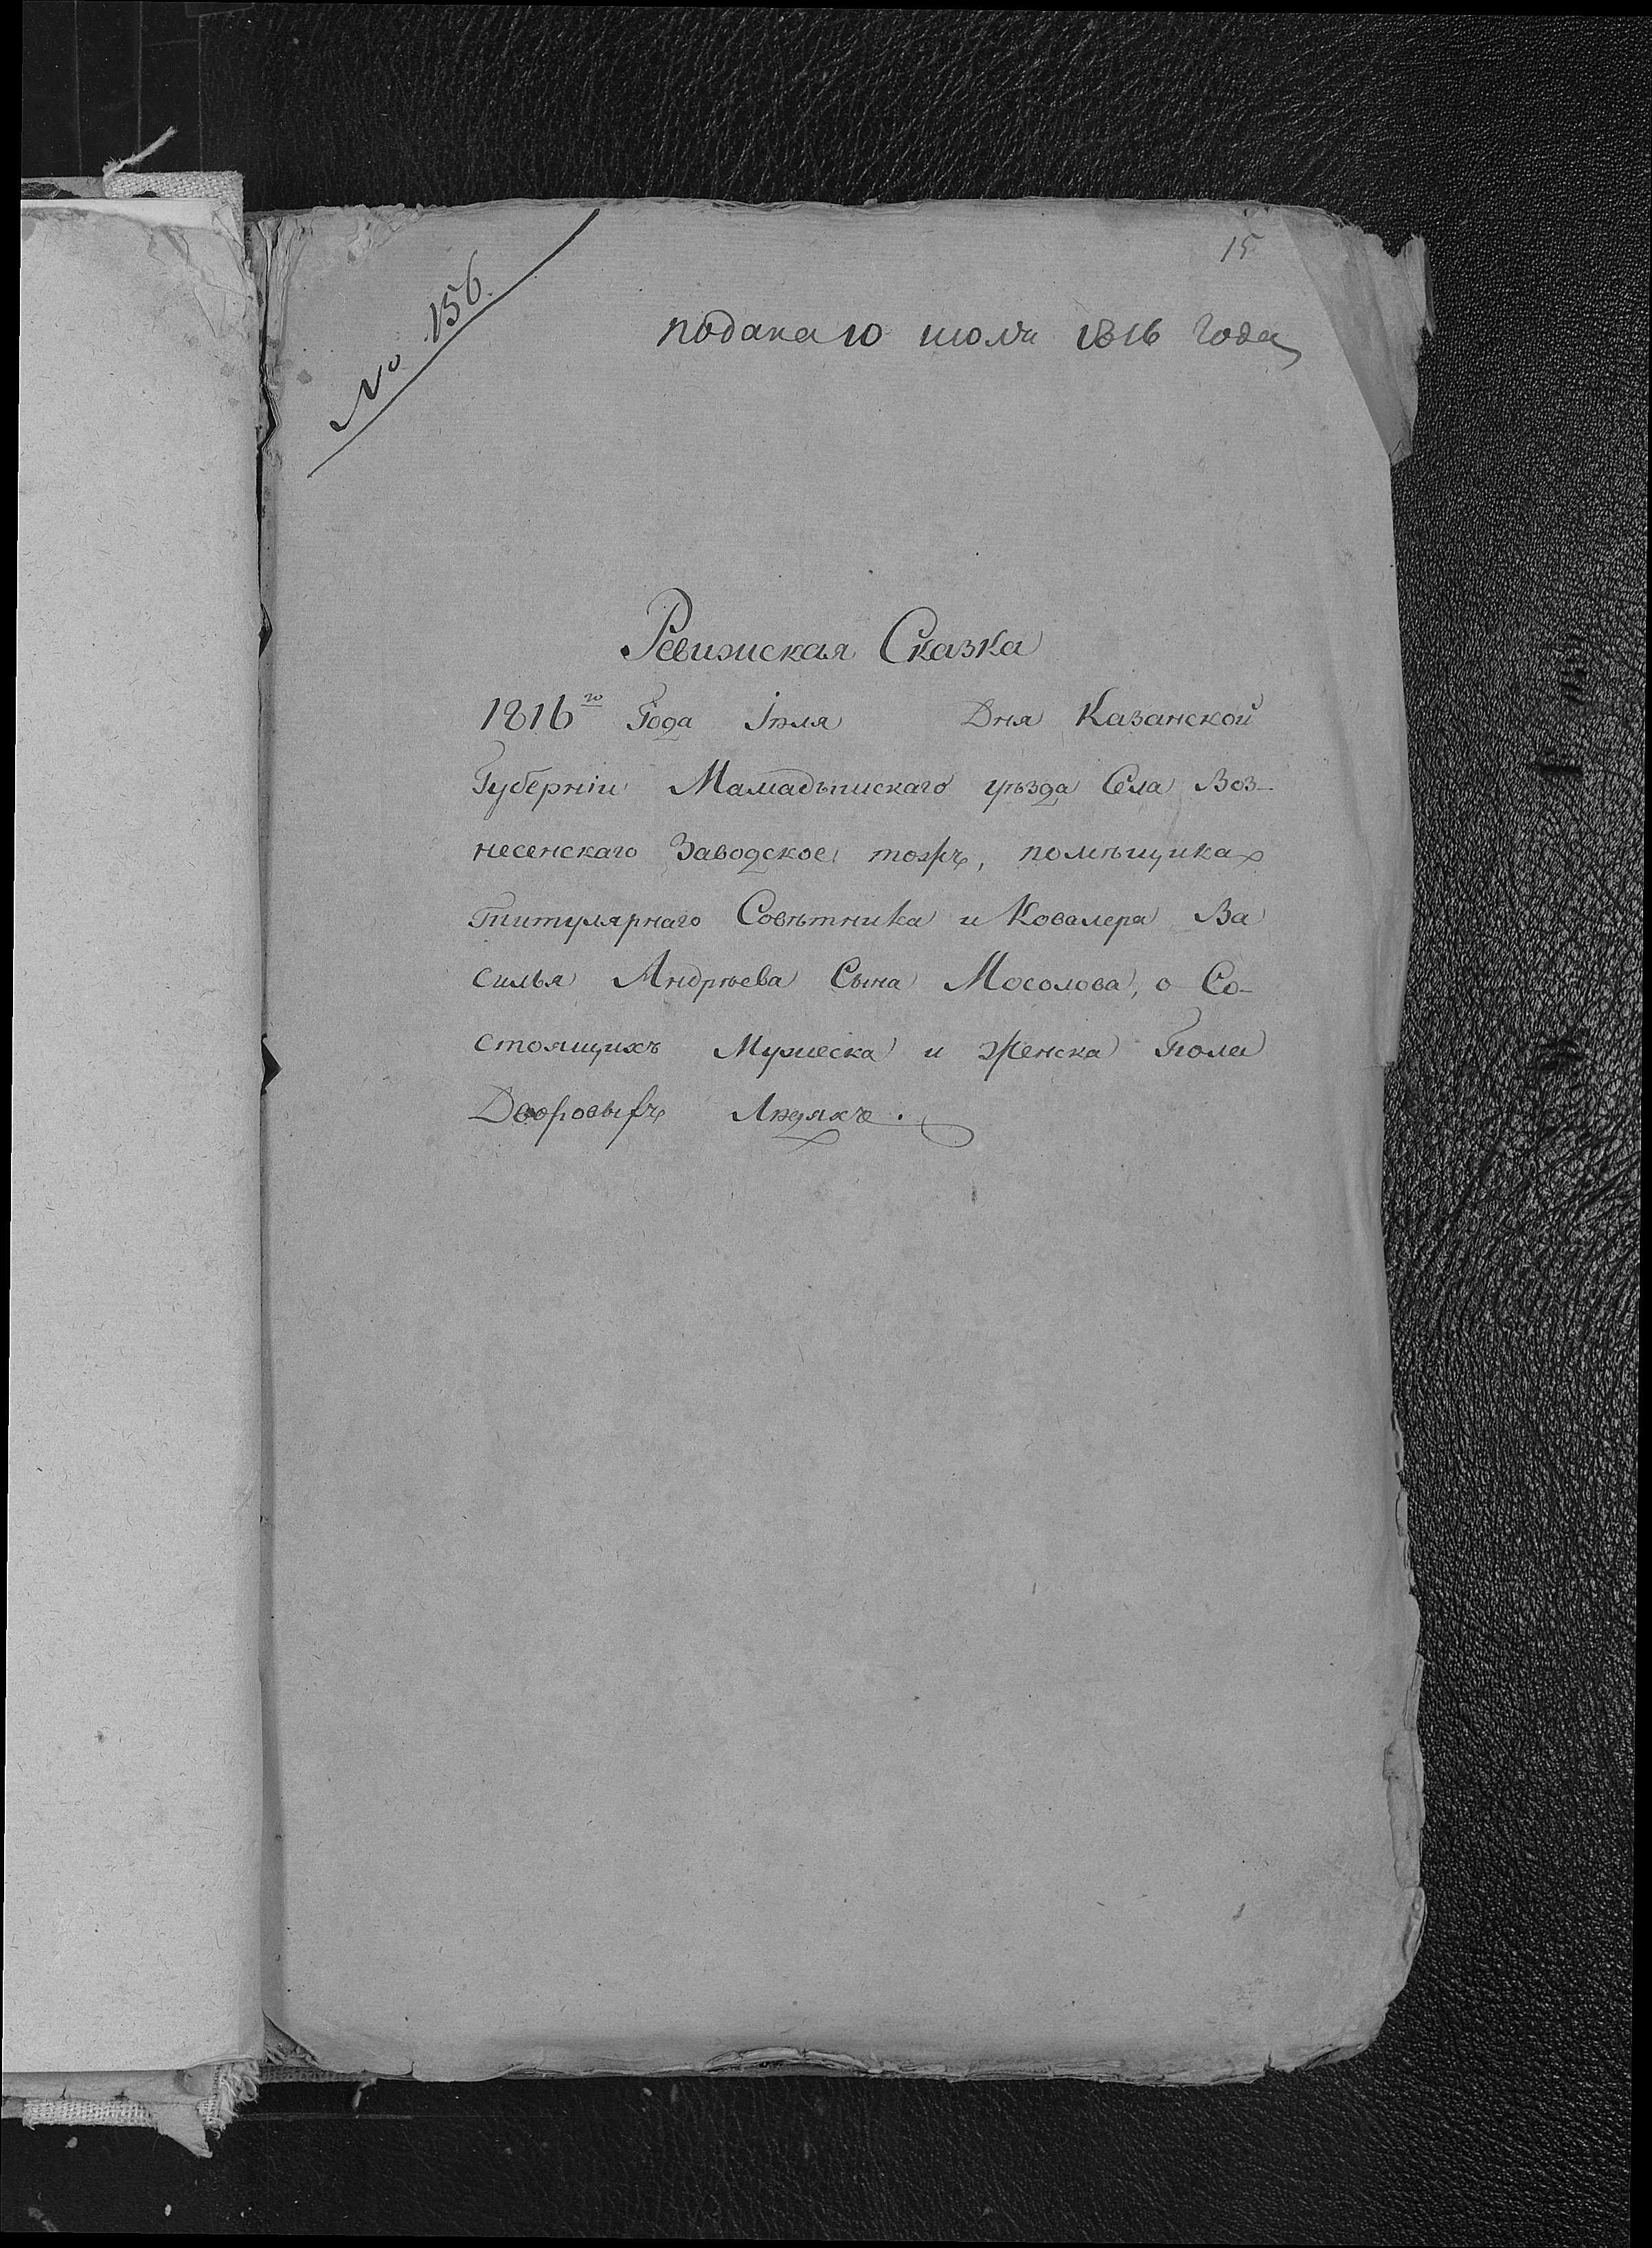 15
№ 156.
подана 10 июля 1816 года
Ревижская Сказка
1816го Года Іюля Дня Казанской
Губерніи Мамадышскаго уѣзда Села Воз-
несенскаго Заводское тожъ, помѣщика
Титулярнаго Совѣтника и Ковалера Ва
силья Андрѣева Сына Мосолова, о Со-
стоящихъ Мужеска и Женска Пола
Дворовыхъ Людяхъ.